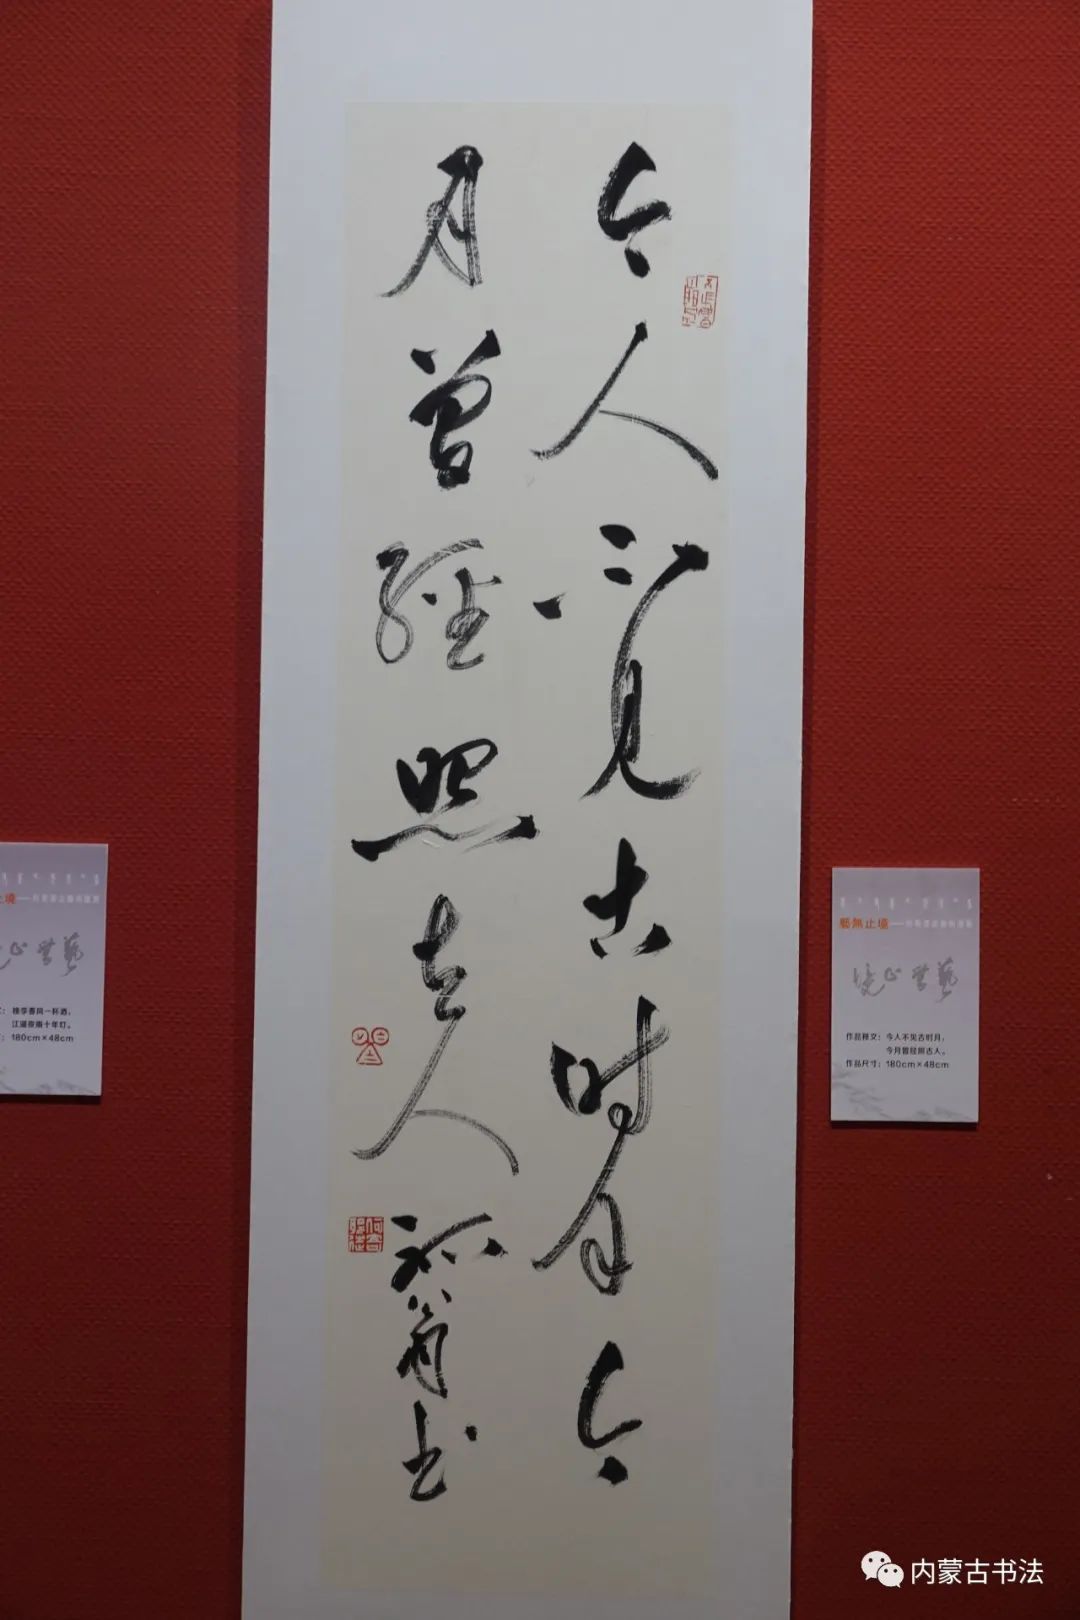 今人不见古时月今
月曾经照古人 孤翁书
藝無止境
藝無止境
作品释文：今人不见古时月，
今月曾经照古人。
作品尺寸：180cm×48cm
止境
桃李春风一杯酒，
江湖夜雨十年灯。
180cm×48cm
内蒙古书法